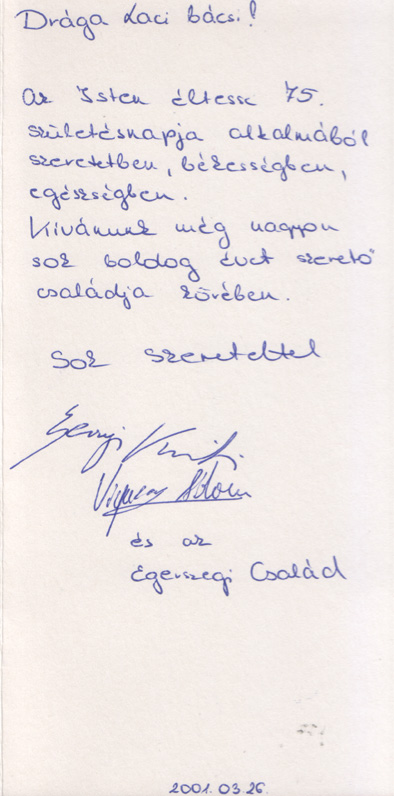 Drága Laci bácsi!
Az Isten éltesse 75.
születésnapja alkalmából
szeretetben, békességben,
egészségben.
Kívánunk még nagyon
sok boldog évet szerető
családja körében.
Sok szeretettel
és az
Egerszegi Család
2001.03.26.